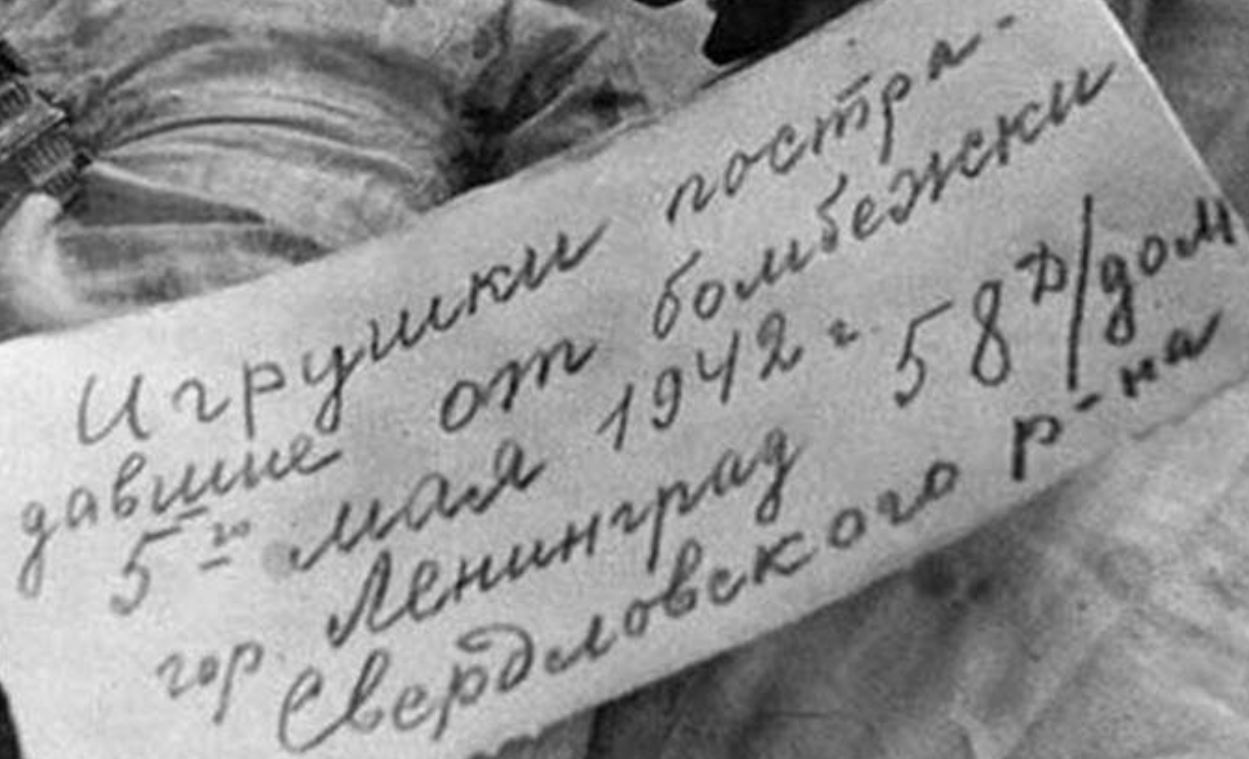 Игрушки постра-
давшие от бомбежки
5го мая 1942 г.
гор. Ленинград 58 Д/дом
Свердловского р-на